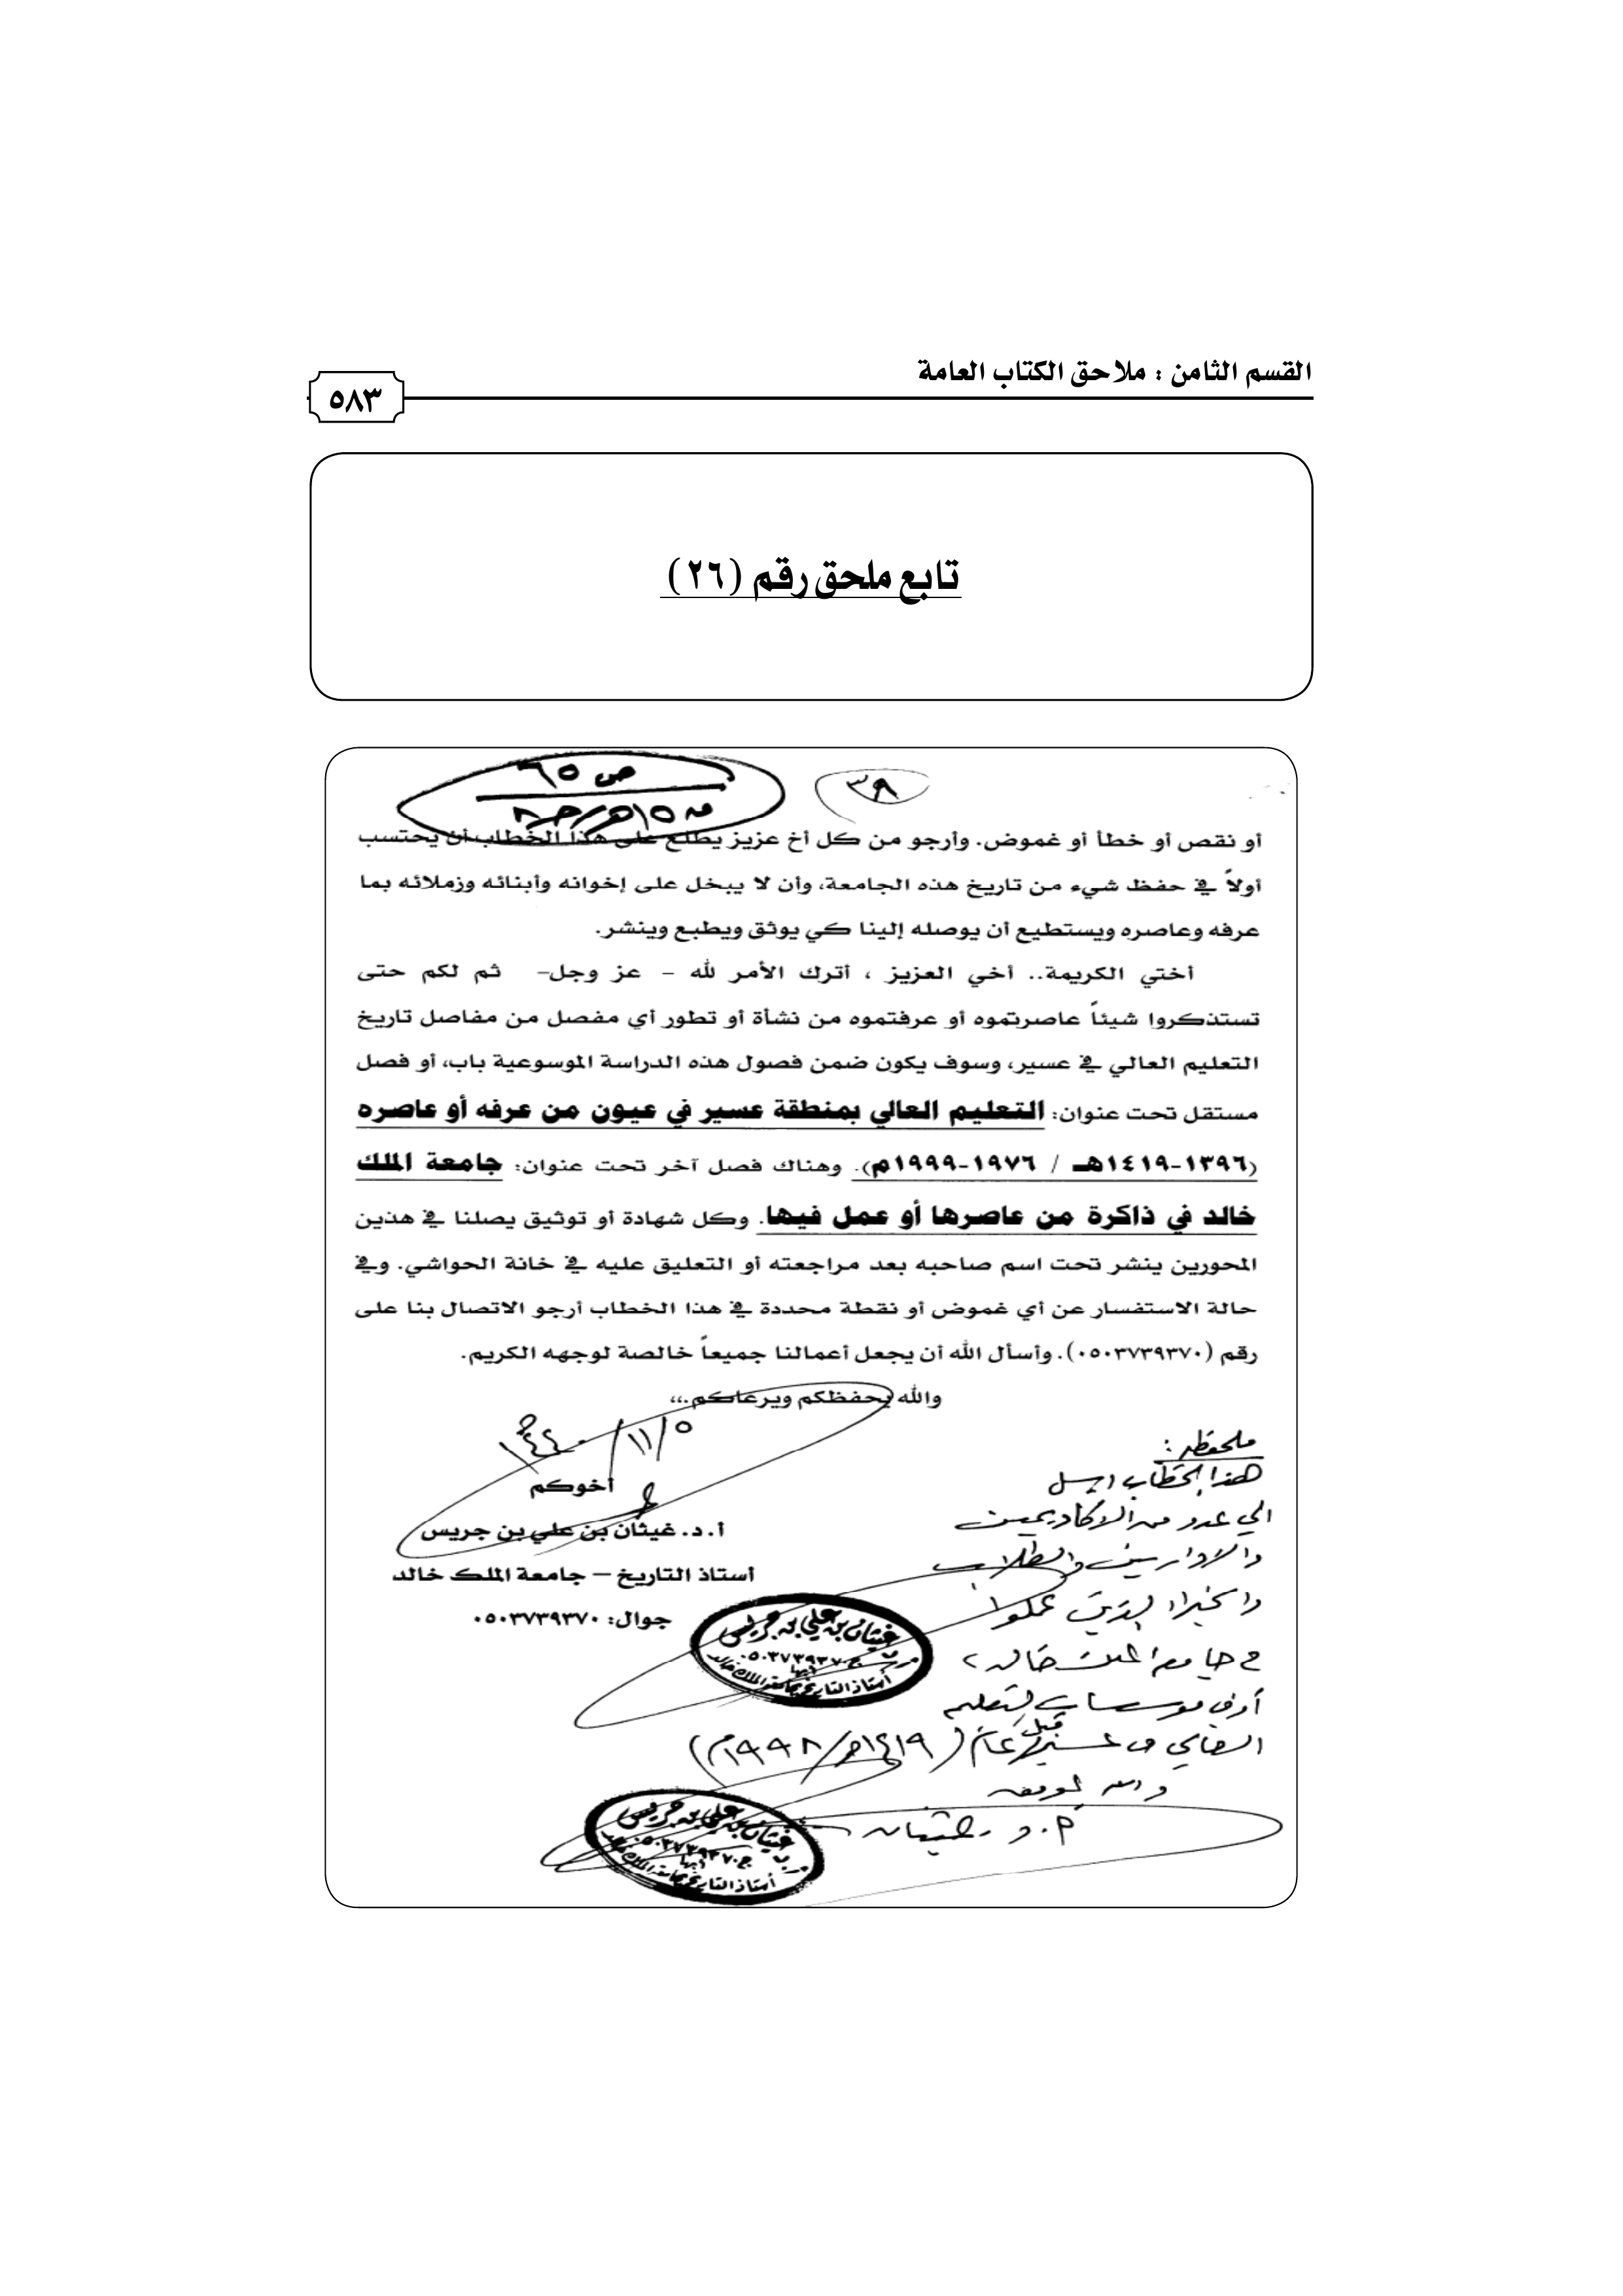 القسم الثامن : ملاحق الكتاب العامة
٥٨٣
تابع ملحق رقم (٢٦)
ص ٦٥
٣٨
أو نقص أو خطأ أو غموض. وأرجو من كل أخ عزيز يطلع على هذا الخطاب أن يحتسب
أولاً في حفظ شيء من تاريخ هذه الجامعة، وأن لا يبخل على إخوانه وأبنائه وزملائه بما
عرفه وعاصره ويستطيع أن يوصله إلينا كي يوثق ويطبع وينشر.
أختي الكريمة.. أخي العزيز ، أترك الأمر لله - عز وجل- ثم لكم حتى
تستذكروا شيئاً عاصرتموه أو عرفتموه من نشأة أو تطور أي مفصل من مفاصل تاريخ
التعليم العالي في عسير، وسوف يكون ضمن فصول هذه الدراسة الموسوعية باب، أو فصل
مستقل تحت عنوان: التعليم العالي بمنطقة عسير في عيون من عرفه أو عاصره
(١٣٩٦-١٤١٩هـ / ١٩٧٦-١٩٩٩م). وهناك فصل آخر تحت عنوان: جامعة الملك
خالد في ذاكرة من عاصرها أو عمل فيها. وكل شهادة أو توثيق يصلنا في هذين
المحورين ينشر تحت اسم صاحبه بعد مراجعته أو التعليق عليه في خانة الحواشي. وفي
حالة الاستفسار عن أي غموض أو نقطة محددة في هذا الخطاب أرجو الاتصال بنا على
رقم (٠٥٠٣٧٣٩٣٧٠). وأسأل الله أن يجعل أعمالنا جميعاً خالصة لوجهه الكريم.
والله يحفظكم ويرعاكم.،،
٥/١١/١٤٤٠هـ
أخوكم
أ.د. غيثان بن علي بن جريس
أستاذ التاريخ – جامعة الملك خالد
جوال: ٠٥٠٣٧٣٩٣٧٠
ملحوظة:
هذا الخطاب أرسل
إلى عدد من الأكاديميين
والإداريين والطلاب
والخبراء الذين عملوا
في جامعة الملك خالد،
أو في مؤسسات التعليم
العالي في عسير قبل عام (١٤١٩هـ/١٩٩٨م)
والله الموفق
أ.د. غيثان
غيثان بن علي بن جريس
ج. ٠٥٠٣٧٣٩٣٧٠
أبها
أستاذ التاريخ بجامعة الملك خالد
غيثان بن علي بن جريس
ج. ٠٥٠٣٧٣٩٣٧٠
أبها
أستاذ التاريخ بجامعة الملك خالد